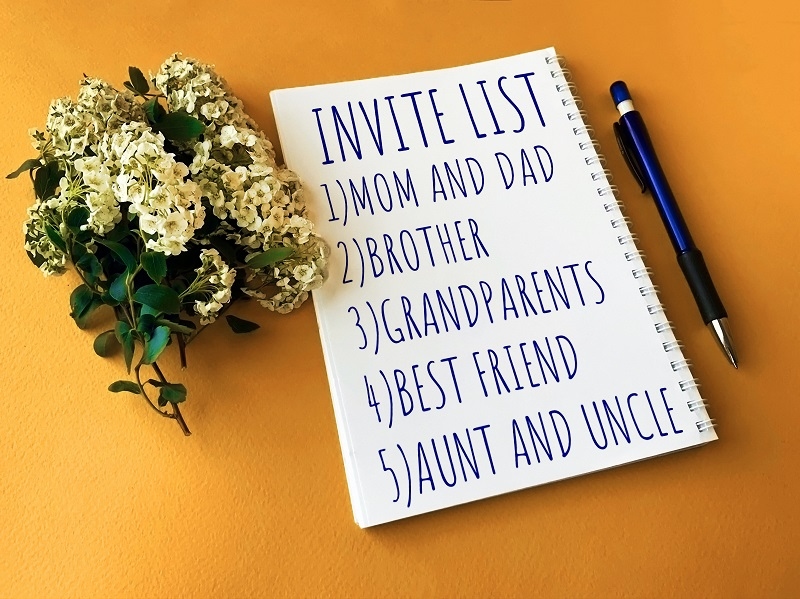 INVITE LIST
1)MOM AND DAD
2)BROTHER
3)GRANDPARENTS
4)BEST FRIEND
5)AUNT AND UNCLE